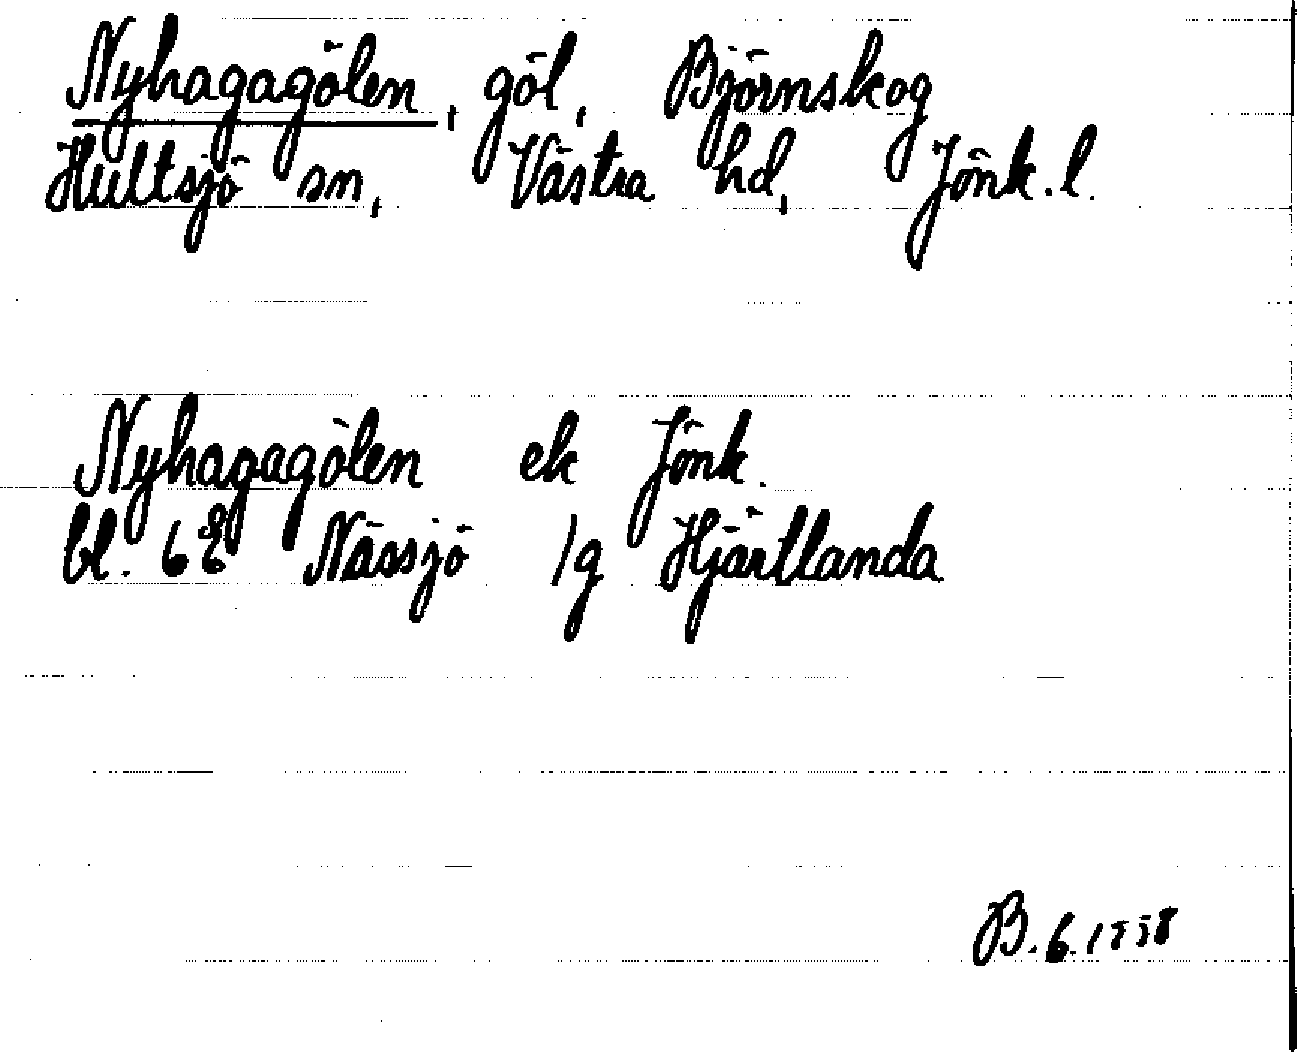 Nyhagagölen, göl, Björnskog
Hultsjö sn, Västra hd, Jönk. l.
Nyhagagölen ek Jönk.
bl. 6 E Nässjö 1g Hjärtlanda
B. 6.